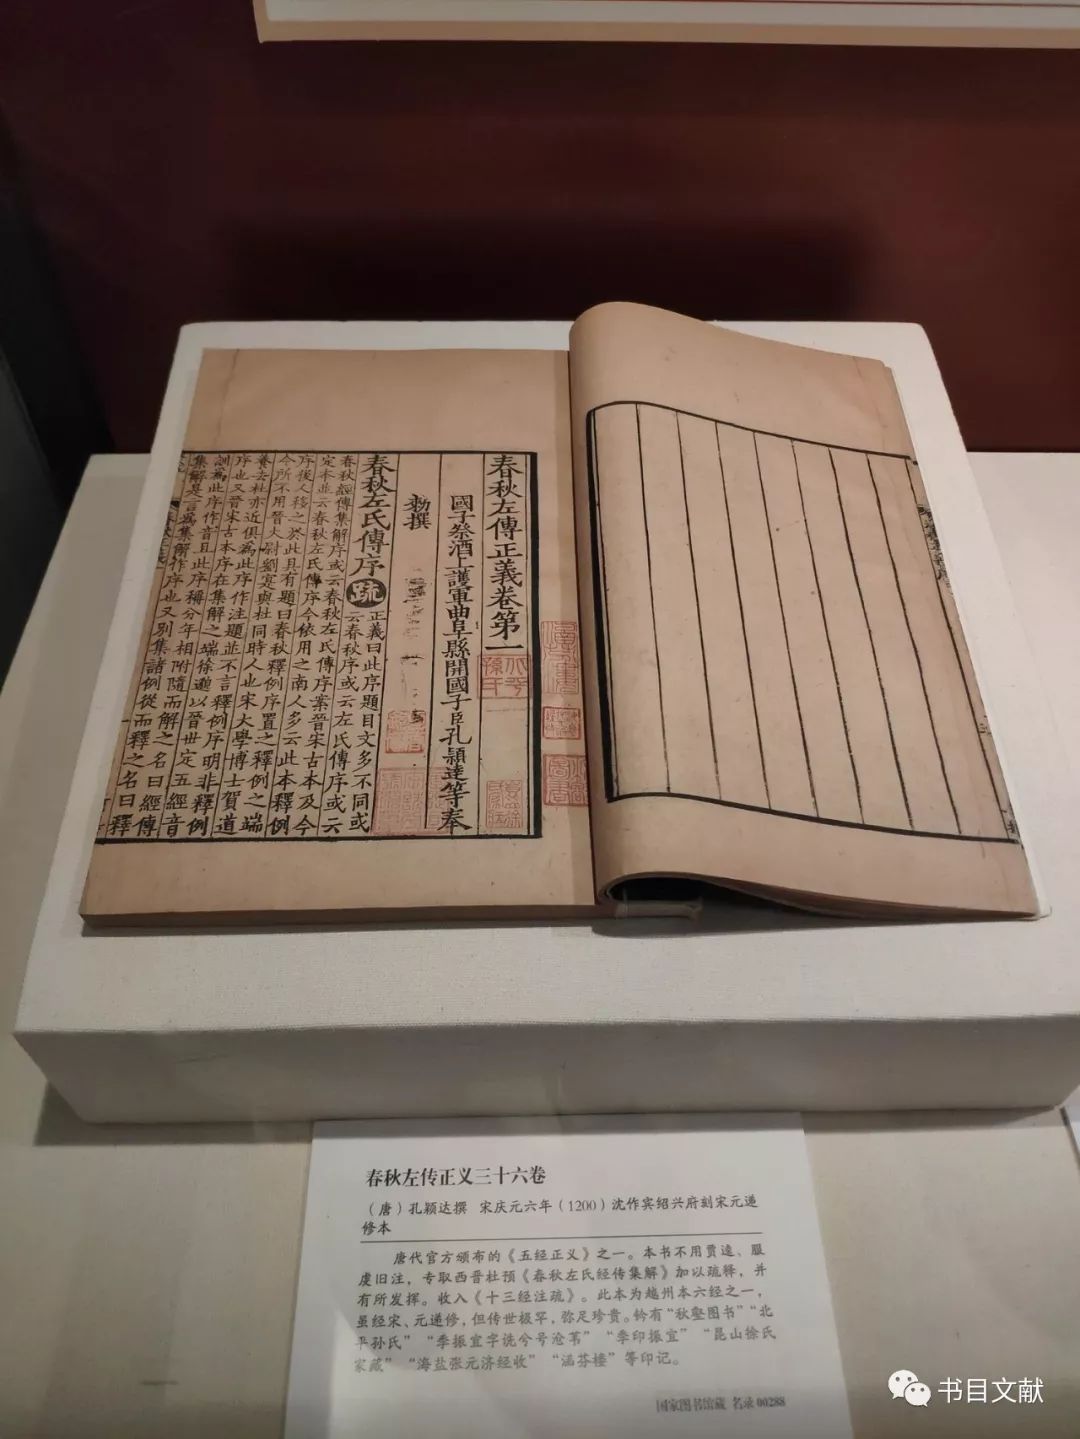 春秋左傳正義卷第一
國子祭酒上護軍曲阜縣開國子臣孔穎達等奉
勑撰
春秋左氏傳序
疏
正義曰此序題目文多不同或
云春秋序或云左氏傳序或云
春秋經傳集解序或云春秋左氏傳序案晉宋古本及今
定本並云春秋左氏傳序今依用之南人多云此本釋例
序後人移之於此且有題曰春秋釋例序置之釋例之端
今所不用晉大尉劉寔與杜同時人也宋大學博士賀道
養去杜亦近俱為此序作注題並不言釋例序明非釋例
序也又晉宋古本序在集解之端徐邈以晉世定五經音
訓為此序作音且此序稱分年相附隨而解之名曰經傳
集解是言為集解作序也又別集諸例從而釋之名曰釋
春秋左传正义三十六卷
（唐）孔颖达撰 宋庆元六年（1200）沈作宾绍兴府刻宋元递
修本
唐代官方颁布的《五经正义》之一。本书不用贾逵、服
虔旧注，专取西晋杜预《春秋左氏经传集解》加以疏释，并
有所发挥。收入《十三经注疏》。此本为越州本六经之一，
虽经宋、元递修，但传世极罕，弥足珍贵。钤有“秋壑图书”“北
平孙氏”“季振宜字诜兮号沧苇”“季印振宜”“昆山徐氏
家藏”“海盐张元济经收”“涵芬楼”等印记。
国家图书馆藏 名录00288
书目文献